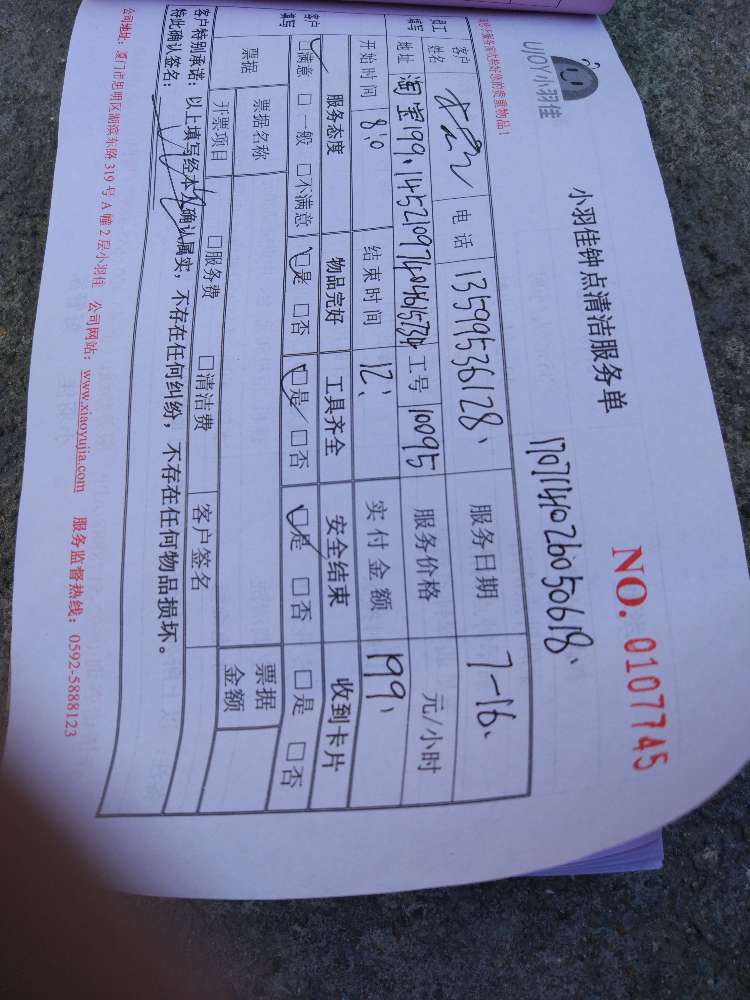 UJOY小羽佳
小羽佳钟点清洁服务单
NO. 0107745
170714026050618
员工填写 客户姓名 电话 13599536128 服务日期 7-16
地址 淘宝199. 工号 10095 服务价格 元/小时
开始时间 8:0 结束时间 12: 实付金额 199
客户填写 服务态度 物品完好 工具齐全 安全结束 收到卡片
□满意 □一般 □不满意 □是 □否 □是 □否 □是 □否 □是 □否
票据 票据名称 票据金额
开票项目 □服务费 □清洁费 客户签名
客户特别承诺：以上填写经本人确认属实，不存在任何纠纷，不存在任何物品损坏。
特此确认签名：
公司地址：厦门市思明区湖滨东路 319 号 A 幢 2 层小羽佳 公司网站：www.xiaoyujia.com 服务监督热线：0592-5888123